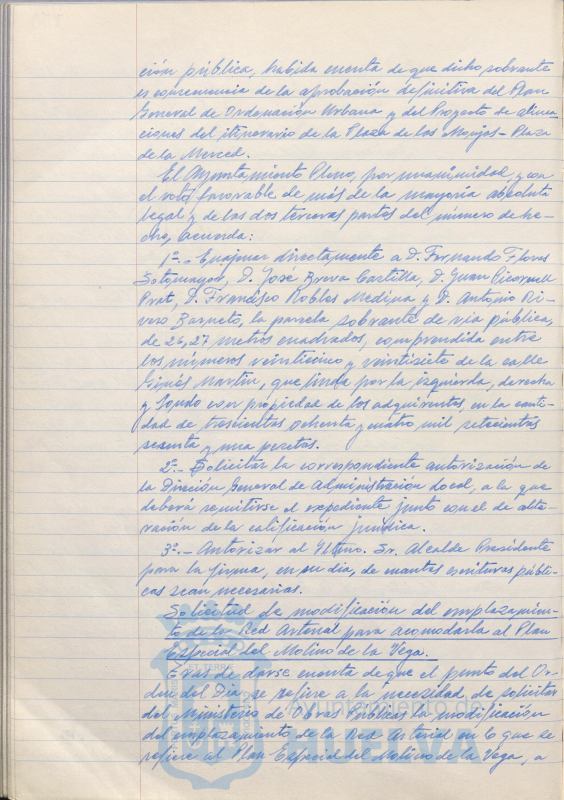 ción pública, habida cuenta de que dicho sobrante
es consecuencia de la aprobación definitiva del Plan
General de Ordenación Urbana y del Proyecto de alinea
ciones del itinerario de la Plaza de las Monjas - Plaza
de la Merced.
El Ayuntamiento Pleno, por unanimidad, y con
el voto favorable de más de la mayoría absoluta
legal y de las dos terceras partes del número de he-
cho, acuerda:
1º.- Enajenar directamente a D. Fernando Flores
Sotomayor, D. José Breva Castilla, D. Juan Picornell
Prat, D. Francisco Robles Medina y D. Antonio Ri-
vero Barneto, la parcela sobrante de vía pública,
de 26,27 metros cuadrados, comprendida entre
los números veinticinco y veintisiete de la calle
Ginés Martín, que linda por la izquierda, derecha
y fondo con propiedad de los adquirentes, en la canti-
dad de trescientas ochenta y cuatro mil setecientas
sesenta y una pesetas.
2º.- Solicitar la correspondiente autorización de
la Dirección General de Administración Local, a la que
deberá remitirse el expediente junto con el de alte-
ración de la calificación jurídica.
3º.- Autorizar al Iltmo. Sr. Alcalde Presidente
para la firma, en su día, de cuantas escrituras públi-
cas sean necesarias.
Solicitud de modificación del emplazamien-
to de la Red Arterial para acomodarla al Plan
Especial del Molino de la Vega.
Tras de darse cuenta de que el punto del Or-
den del Día se refiere a la necesidad de solicitar
del Ministerio de Obras Públicas la modificación
del emplazamiento de la Red Arterial en lo que se
refiere al Plan Especial del Molino de la Vega, a
Ayuntamiento de
HUELVA